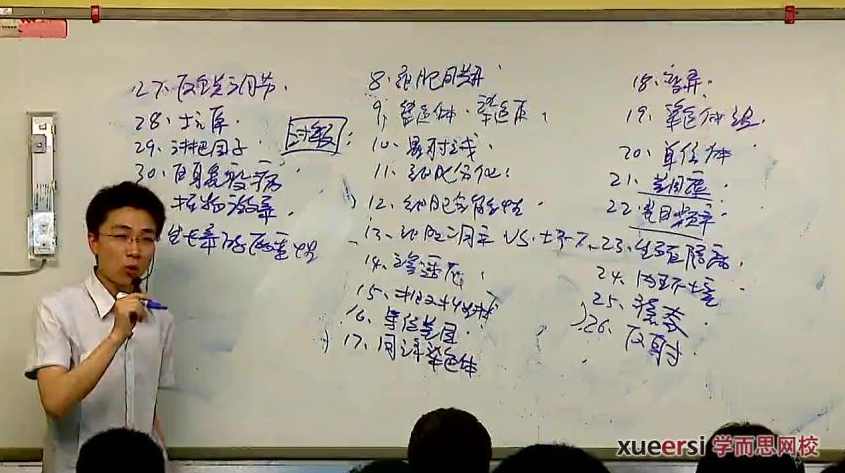 27、反馈调节.
28、抗原.
29、淋巴因子.
30、自身免疫病
植物激素.
生长素的两重性
计算
8、细胞周期.
9、染色体、染色质、
10、
11、细胞分化.
12、细胞全能性.
13、细胞凋亡 VS 坏死.
14、渗透压.
15、
16、等位基因.
17、同源染色体
18、变异.
19、染色体组.
20、单倍体
21、基因库
22、基因频率
23、生殖隔离.
24、内环境
25、稳态.
26、反射.
xueersi 学而思网校